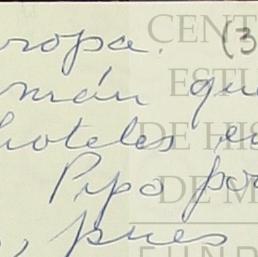 uropa. (3
mán que
hoteles e
Pipo por
, pues
CENT
ESTU
DE HIS
DE M
FUND